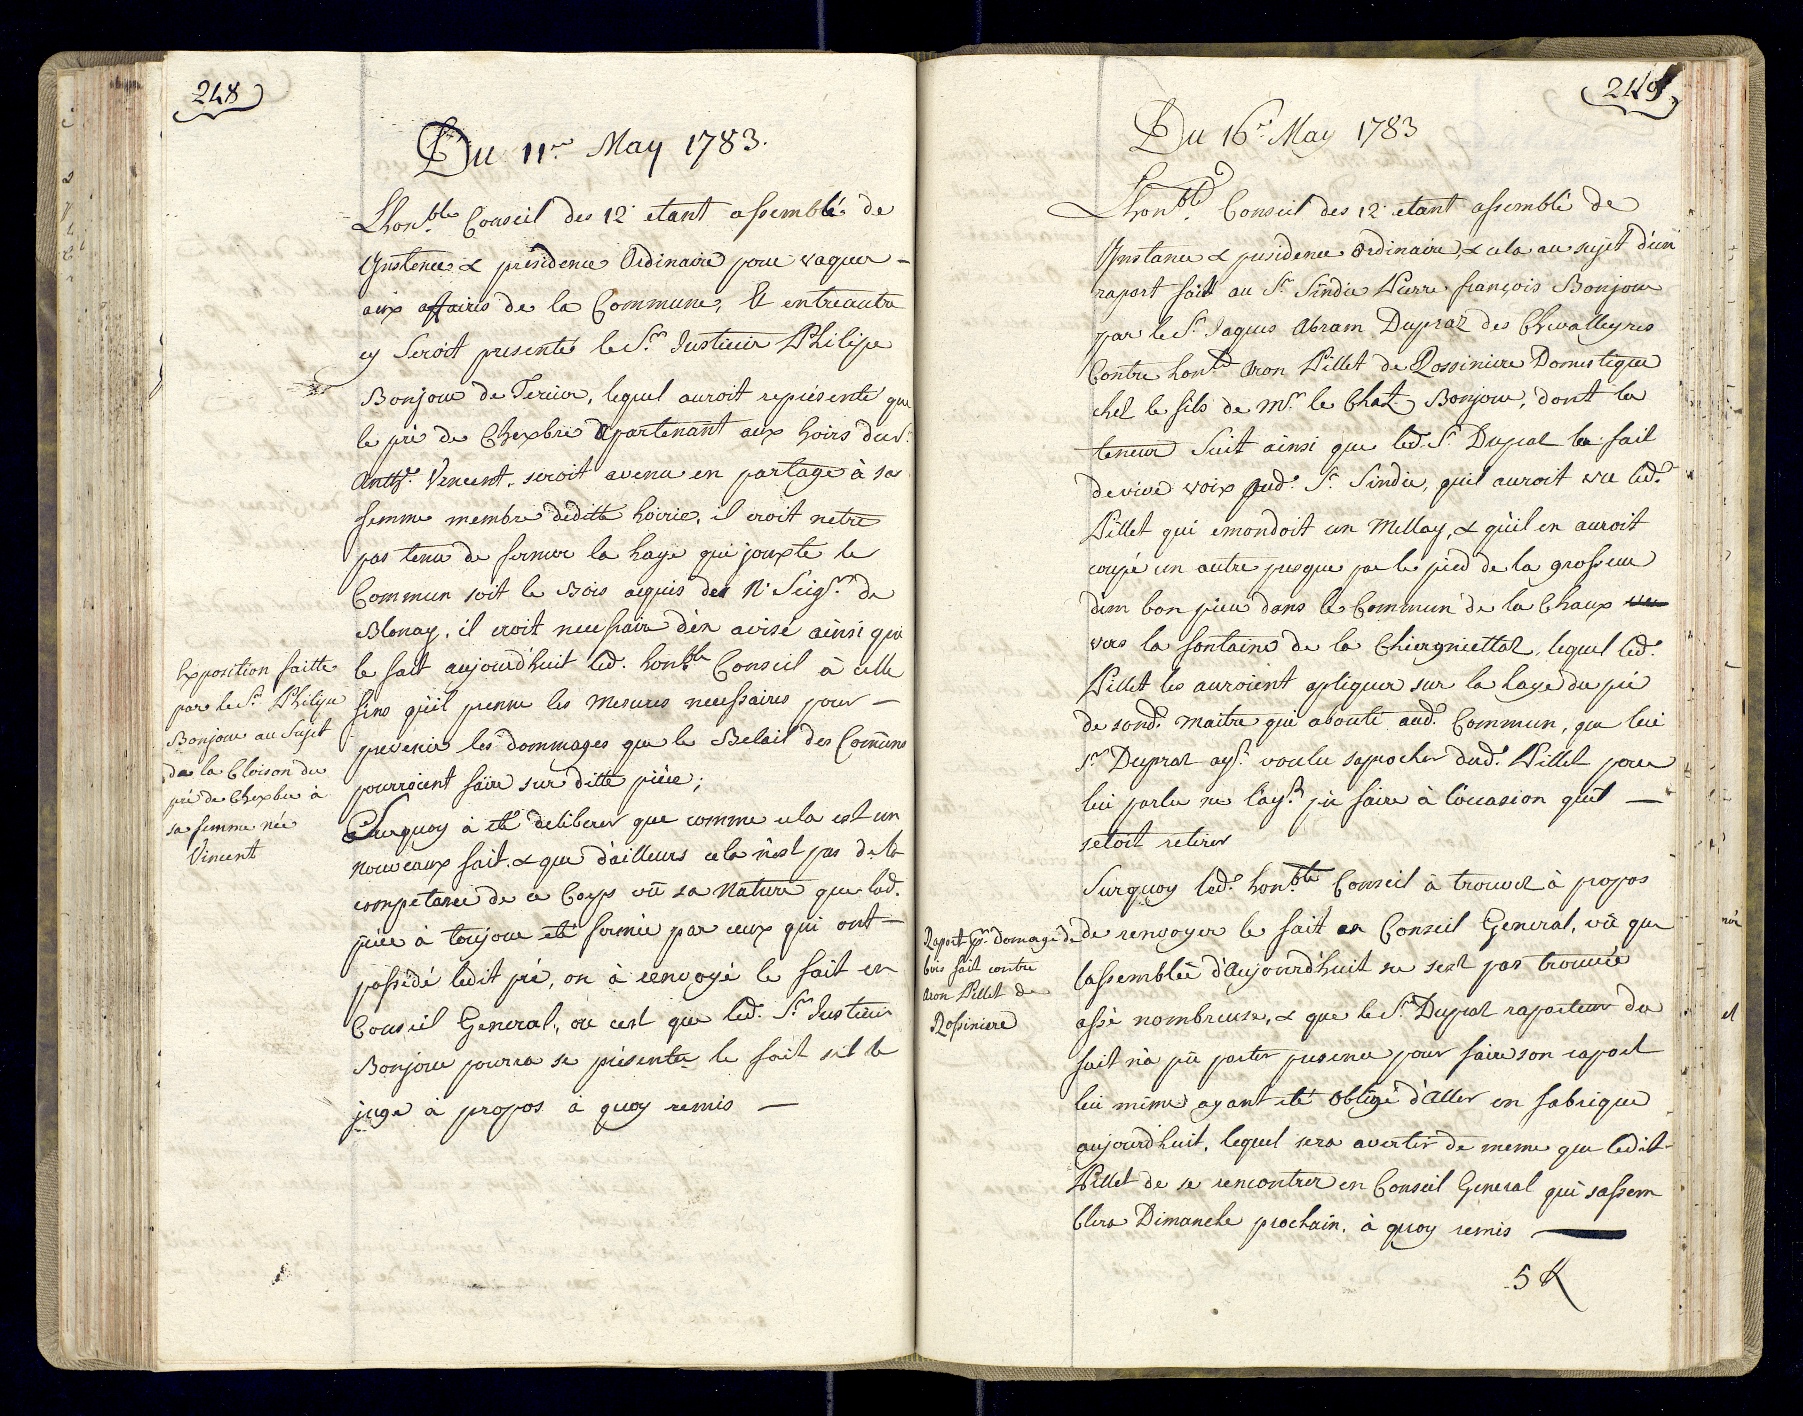 248
Du 11.e May 1783.
Lhon.ble Conseil des 12 etant assemblé de
Instence & présidence Ordinaire pour vaquer –
aux affaires de la Commune, Et entreautre
y Seroit presenté le S.r Justicier Philipe
Bonjour de Tercier, lequel auroit représenté que
le pré de Chexbre apartenant aux hoirs du S.r
Vincent, seroit avenu en partage à sa
femme membre deditte hoirie, il croit netre
pas tenu de fermer la haye qui jouxte le
Commun soit le Bois aquis des N. Seig.rs de
Blonay, il croit necessaire d'en avisé ainsi qui
le fait aujourd'huit led. hon.ble Conseil à celle
fins qu'il prenne les Mesures necessaires pour –
prevenir les dommages que le Betail des Comuns
pourroient faire sur ditte pièce;
Surquoy à eté deliberer que comme cela est un
nouveaux fait, & que d'ailleurs cela n'est pas de la
compétance de ce Corps vû sa Nature que lad.
pièce à toujour eté fermée par ceux qui ont –
possédé ledit pré, on à renvoyé le fait en
Conseil General, ou cest que led. S.r Justicier
Bonjour pourra se présenter le fait sil le
juge à propos à quoy remis —
Exposition faitte
par le S.r Philipe
Bonjour au Sujet
de la Cloison du
pré de Chexbre à
sa femme née
Vincent
249
Du 16.e May 1783
Lhon.ble Conseil des 12 etant assemblé de
Instance & présidence Ordinaire, & cela au sujet d'un
raport fait au S.r Sindic Pierre françois Bonjour
par le S.r Jaques Abram Dupraz de Chevalleyres
Contre hon.le Aron Pillet de Rossiniere Domestique
chez le fils de M.r le Chat. Bonjour, dont la
teneur Suit ainsi que led. S.r Dupraz la fait
de vive voix aud. S.r Sindic, quil auroit vu led.
Pillet qui emondoit un Mellay, & qu'il en auroit
coupé un autre jusque par le pied de la grosseur
dun bon pieu dans le Commun de la Chaux
vers la fontaine de la Chiergniettaz, lequel led.
Pillet les auroient apliquer sur la haye du pré
de sond. maitre qui aboutit aud. Commun, que lui
S.r Dupraz ay.t voulu saprocher dud. Pillet pour
lui parler ne lay.t pû faire à loccasion quil —
setoit retirer
Surquoy led. hon.ble Conseil à trouvez à propos
de renvoyer le fait en Conseil General, vû que
lassemblée d'aujourd'huit ne sest pas trouvée
assé nombreuse, & que le S.r Dupraz raporteur du
fait n'a pû porter presence pour faire son raport
lui même ayant eté obligé d'aller en fabrique
aujourdhuit, lequel sera avertir de meme que ledit
Pillet de se rencontrer en Conseil General qui sassem
blera Dimanche prochain, à quoy remis —
Raport p.r domage de
bois fait contre
Aron Pillet de
Rossiniere